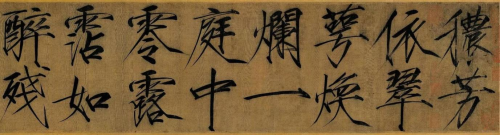 穠芳
依翠
萼煥
爛一
庭中
零露
霑如
醉殘